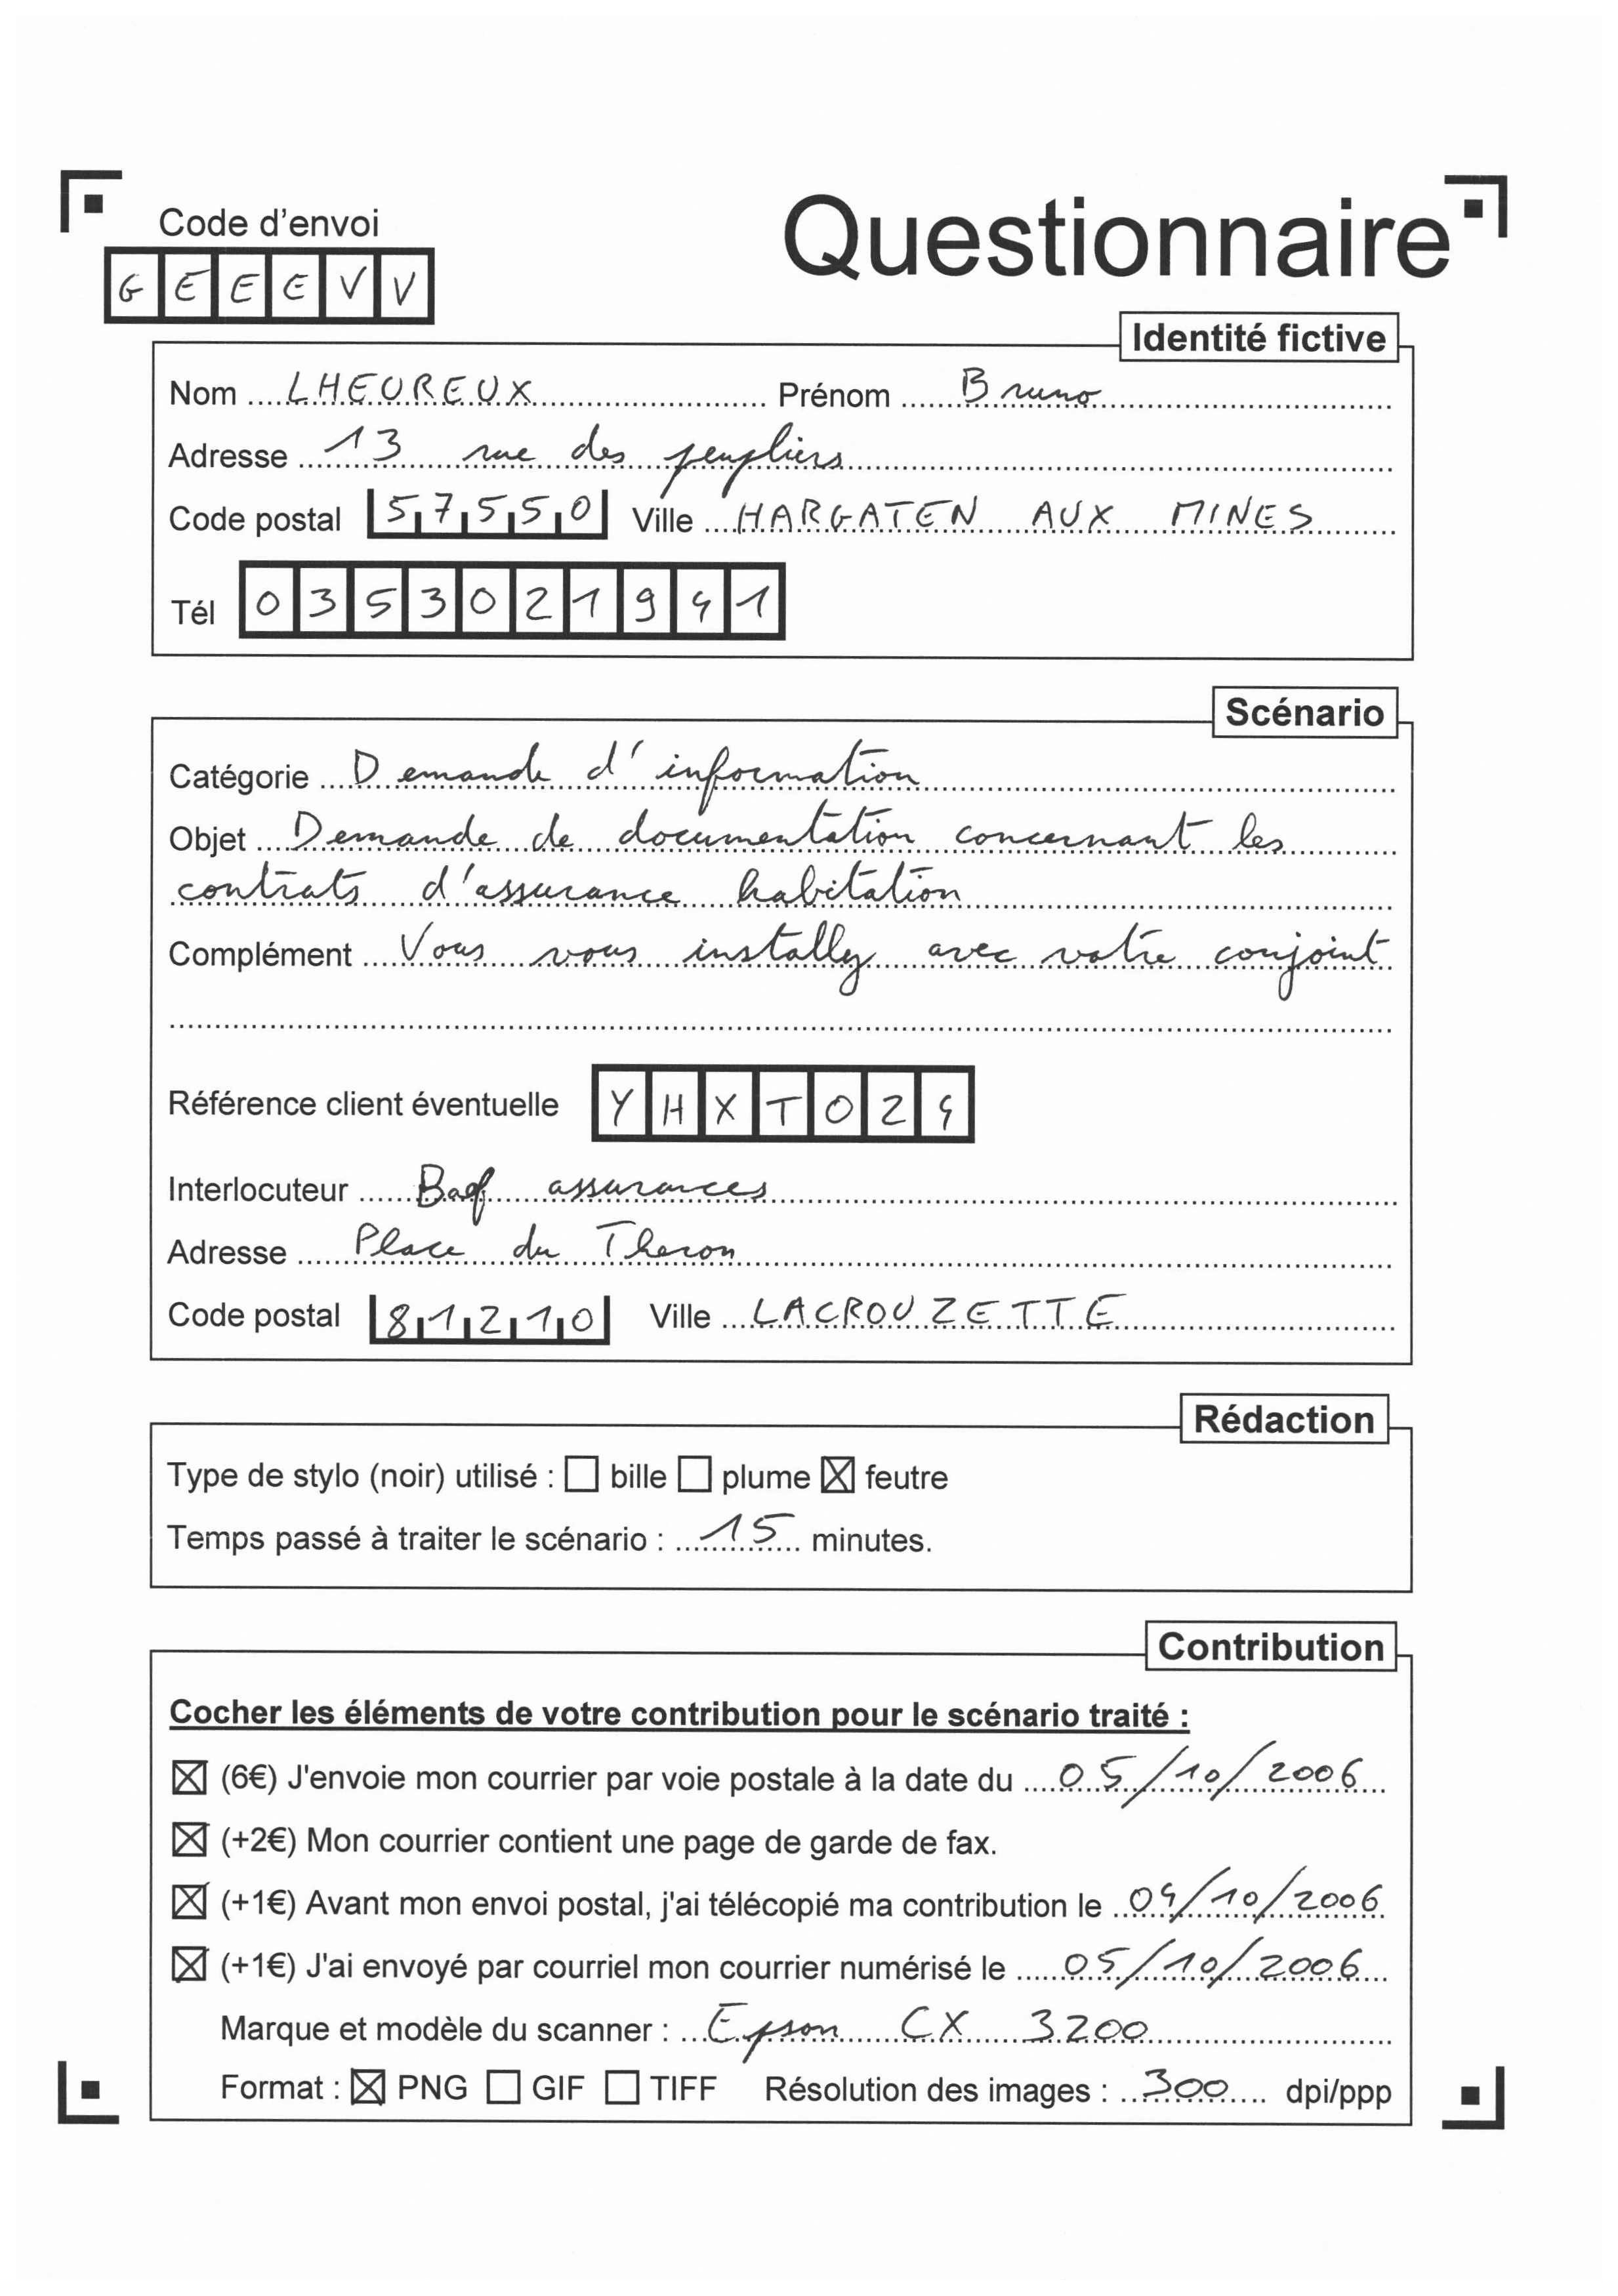 Code d'envoi
Questionnaire
GEEEVV
Identité fictive
Nom LHEUREUX Prénom Bruno
Adresse 13 rue des peupliers
Code postal 57550 Ville HARGATEN AUX MINES
Tél 0353021941
Scénario
Catégorie Demande d'information
Objet Demande de documentation concernant les
contrats d'assurance habitation
Complément Vous vous installez avec votre conjoint
Référence client éventuelle YHXTO24
Interlocuteur Baqf assurances
Adresse Place du Theron
Code postal 81210 Ville LACROUZETTE
Rédaction
Type de stylo (noir) utilisé : ☐ bille ☐ plume ☒ feutre
Temps passé à traiter le scénario : 15 minutes.
Contribution
Cocher les éléments de votre contribution pour le scénario traité :
☒ (6€) J'envoie mon courrier par voie postale à la date du 05/10/2006
☒ (+2€) Mon courrier contient une page de garde de fax.
☒ (+1€) Avant mon envoi postal, j'ai télécopié ma contribution le 04/10/2006
☒ (+1€) J'ai envoyé par courriel mon courrier numérisé le 05/10/2006
Marque et modèle du scanner : Epson CX 3200
Format : ☒ PNG ☐ GIF ☐ TIFF Résolution des images : 300 dpi/ppp